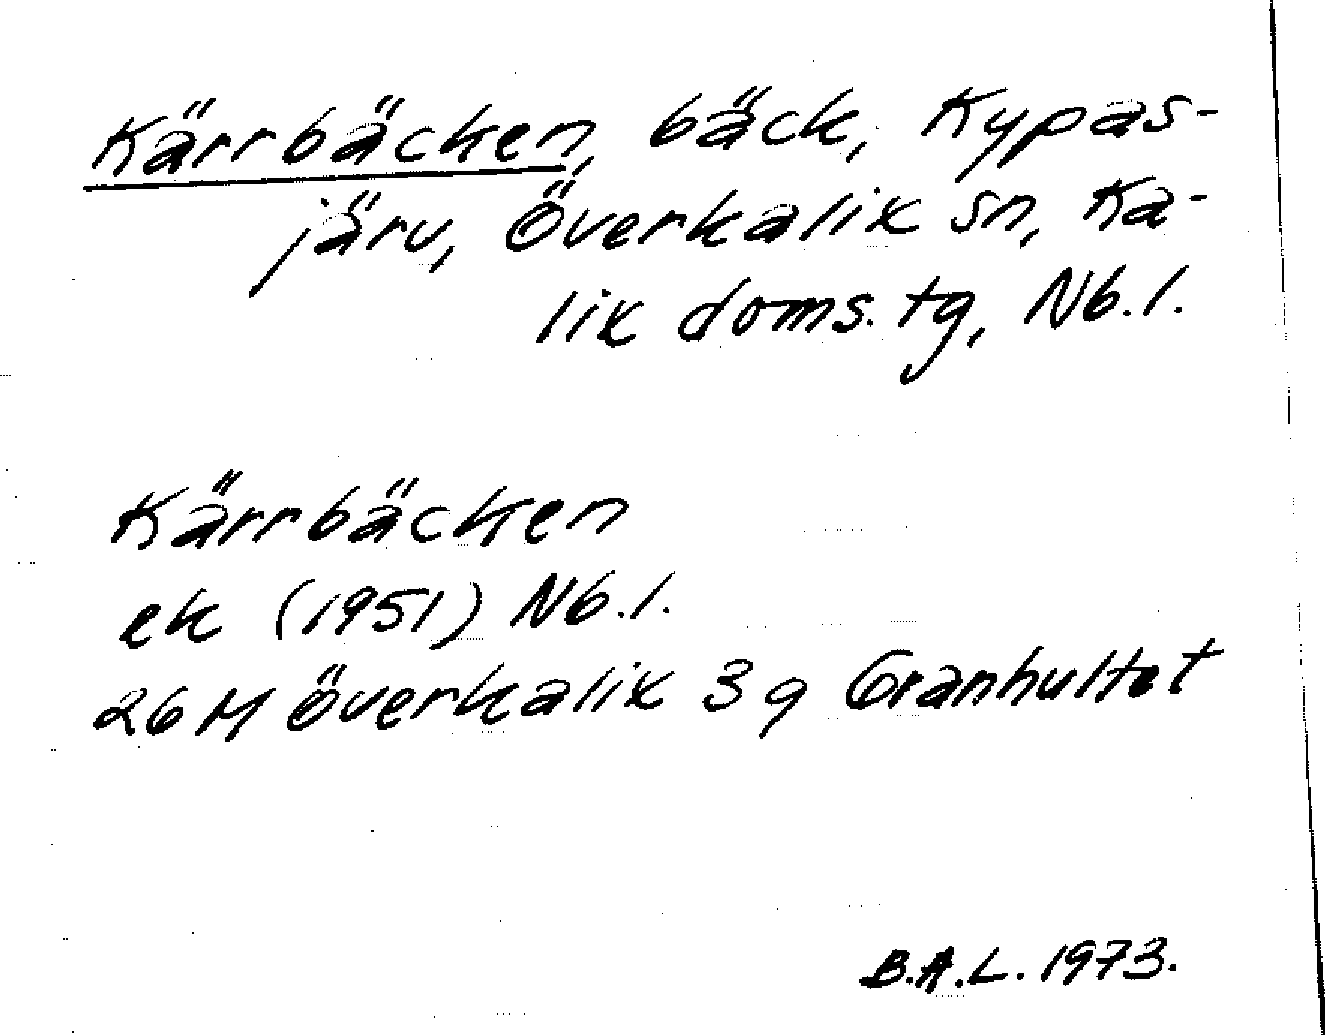 Kärrbäcken, bäck, Kypas-
järv, Överkalix sn, Ka-
lix doms. tg, Nb. l.
Kärrbäcken
ek (1951) Nb. l.
26 M Överkalix 3 g Granhultet
B.A.L. 1973.